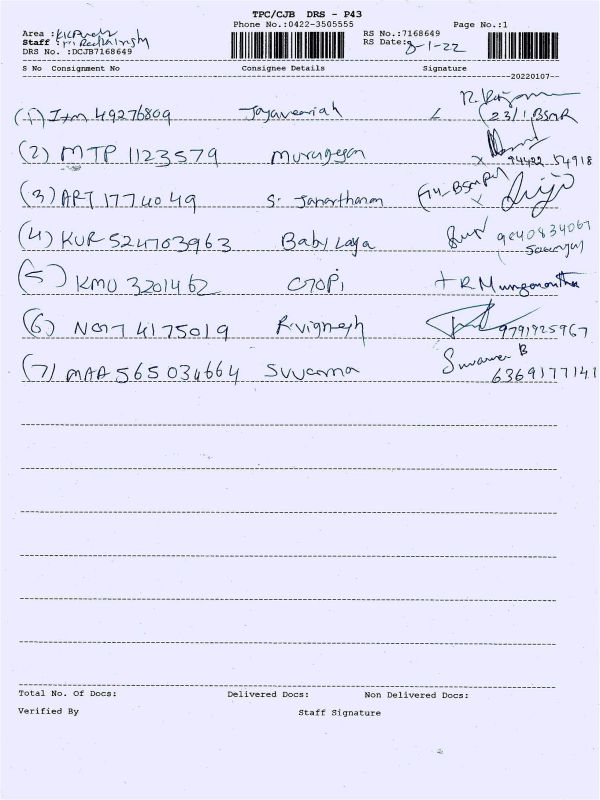 TPC/CJB DRS - P43
Phone No.:0422-3505555 Page No.:1
Area :
Staff :
DRS No. :DCJB7168649
RS No.:7168649
RS Date:8-1-22
S No Consignment No Consignee Details Signature
20220107
(1) 49276809 Jayaveeriah 23/1 BSNR
(2) MTP 1123579 Murugesan 94422 54918
(3) ART 1774049 S. Janarthanan
(4) KUR 524703963 Baby Laya 9840834067
(5) KMU 3201462 GOPi
(6) 4175019 R.vignesh 9791925967
(7) MAA 565034664 Suvarna 6369177141
Total No. Of Docs: Delivered Docs: Non Delivered Docs:
Verified By Staff Signature